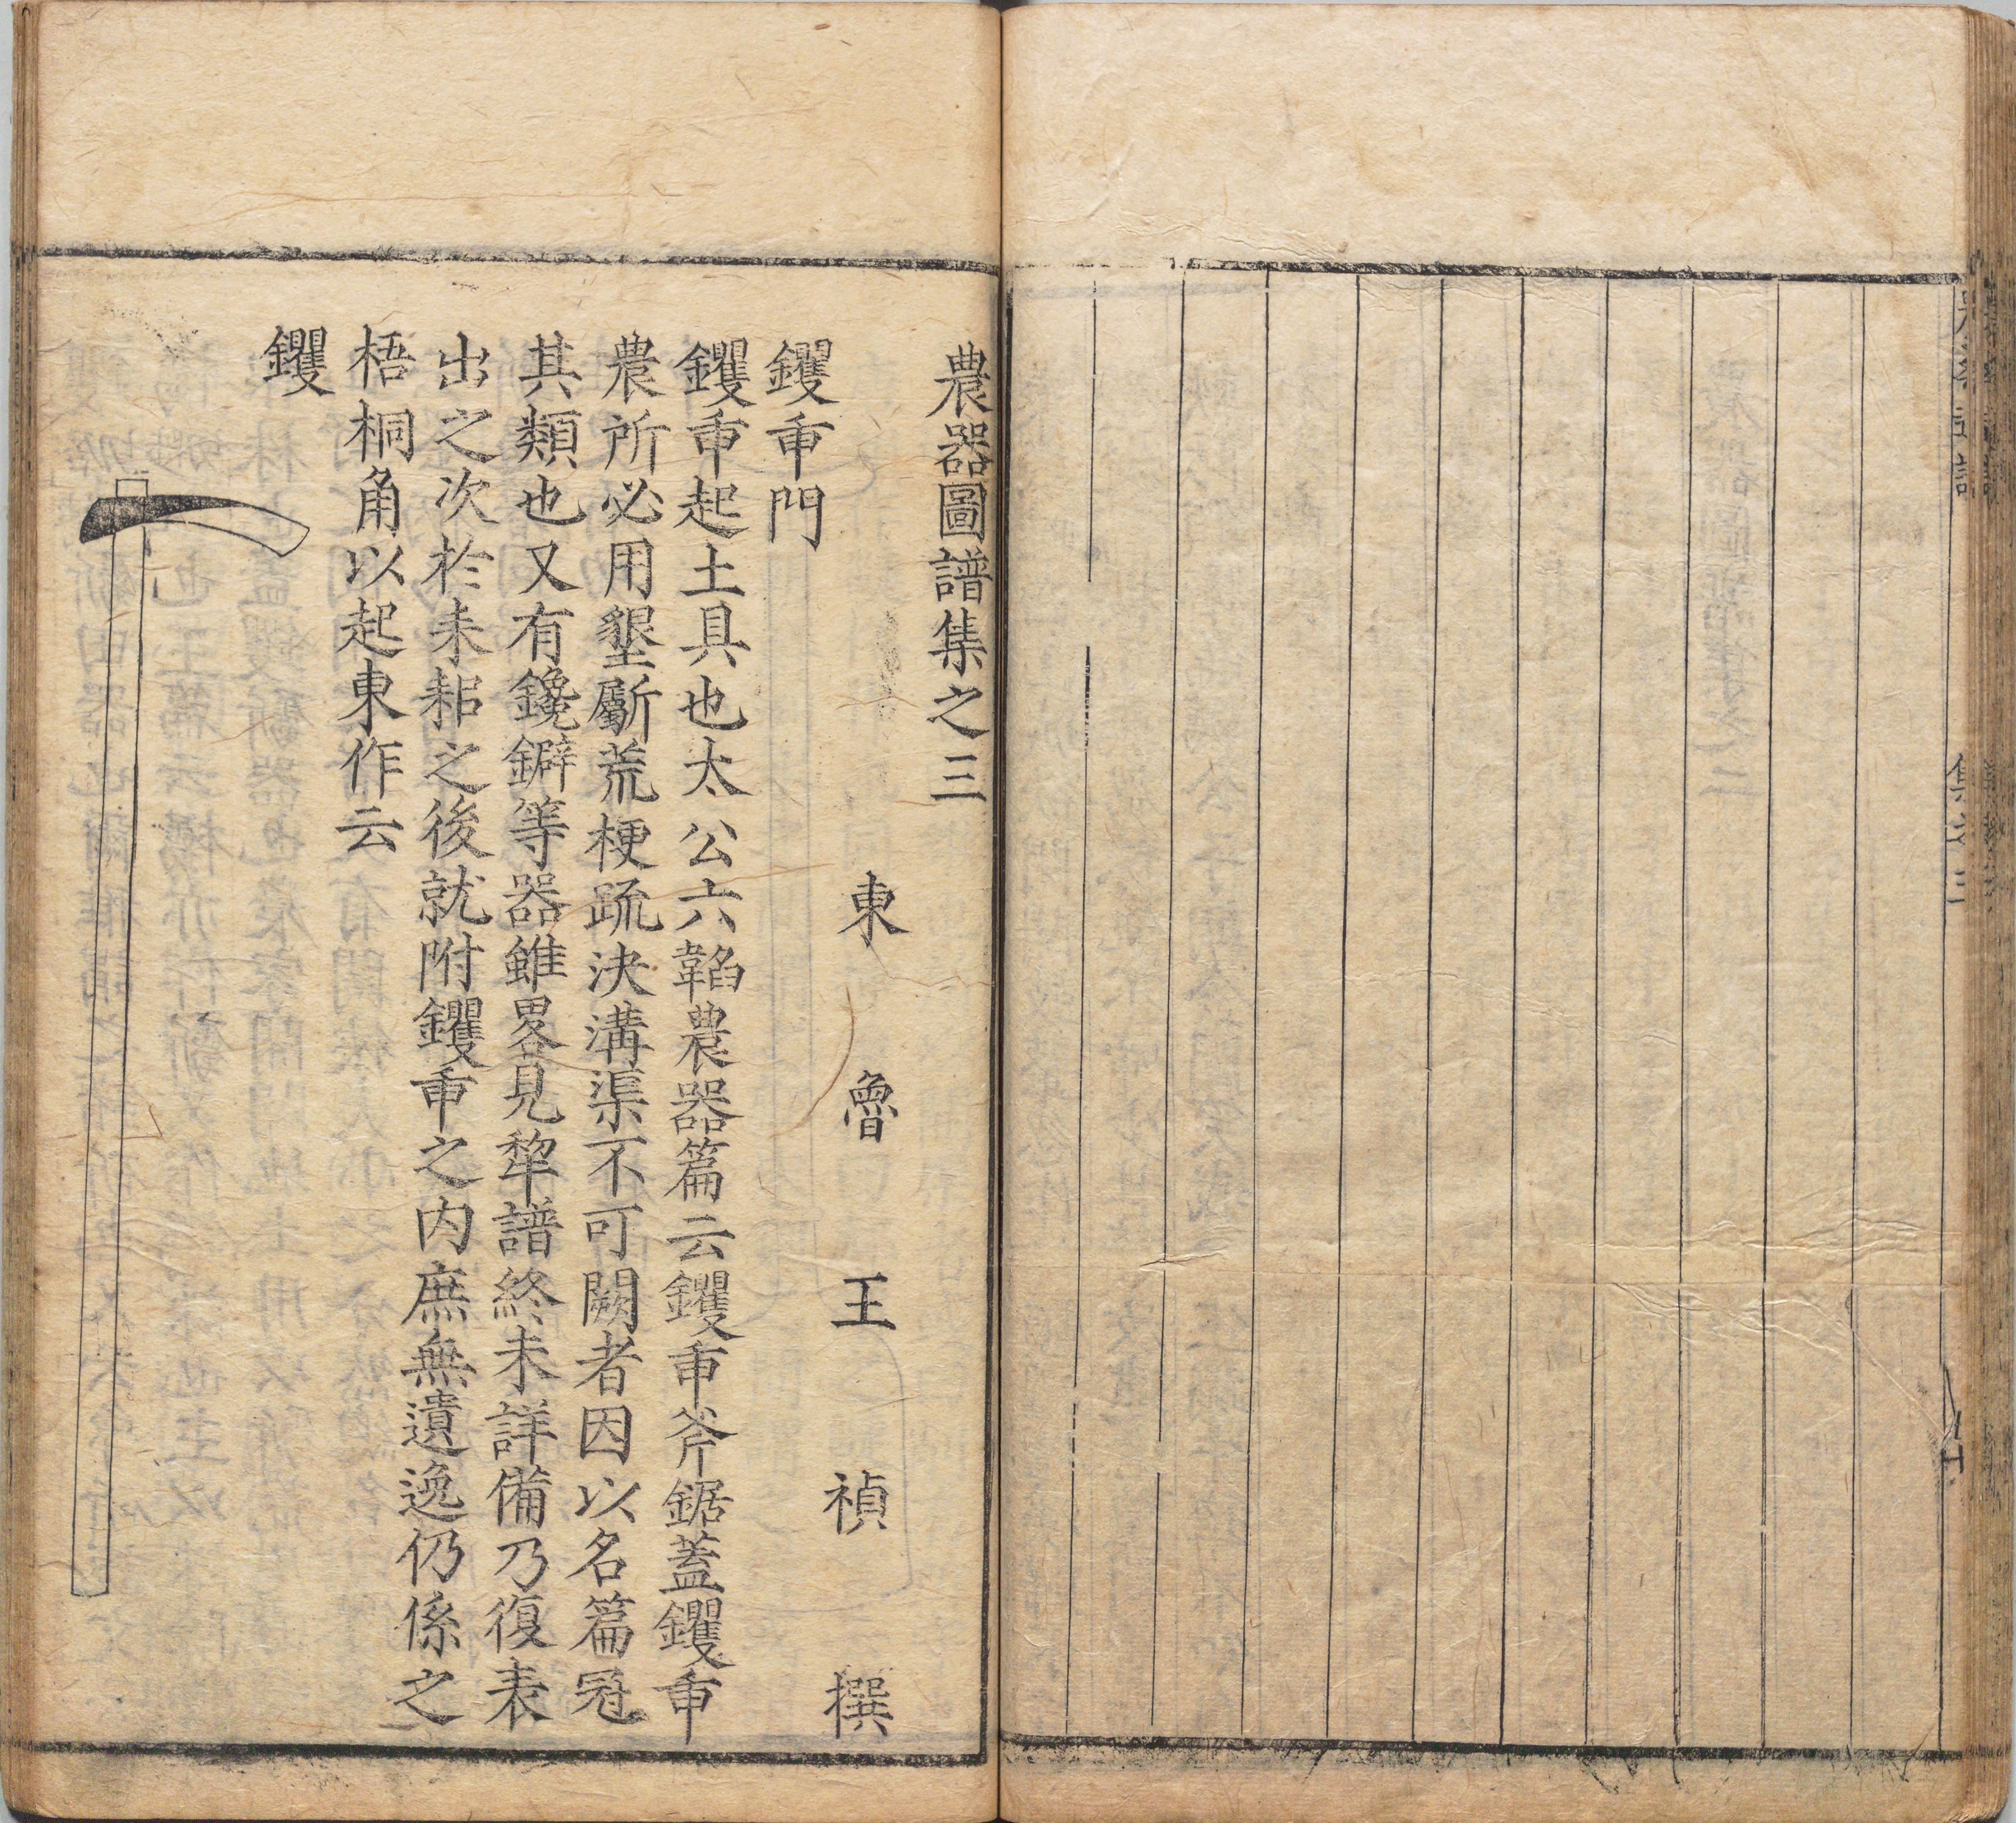 農器圖譜集之三
東魯王禎撰
钁臿門
钁臿起土具也太公六韜農器篇云钁臿斧鋸蓋钁臿
農所必用墾斸荒梗疏決溝渠不可闕者因以名篇冠
其類也又有鑱鐴等器雖畧見犂譜終未詳備乃復表
出之次於耒耜之後就附钁臿之内庶無遺逸仍係之
梧桐角以起東作云
钁